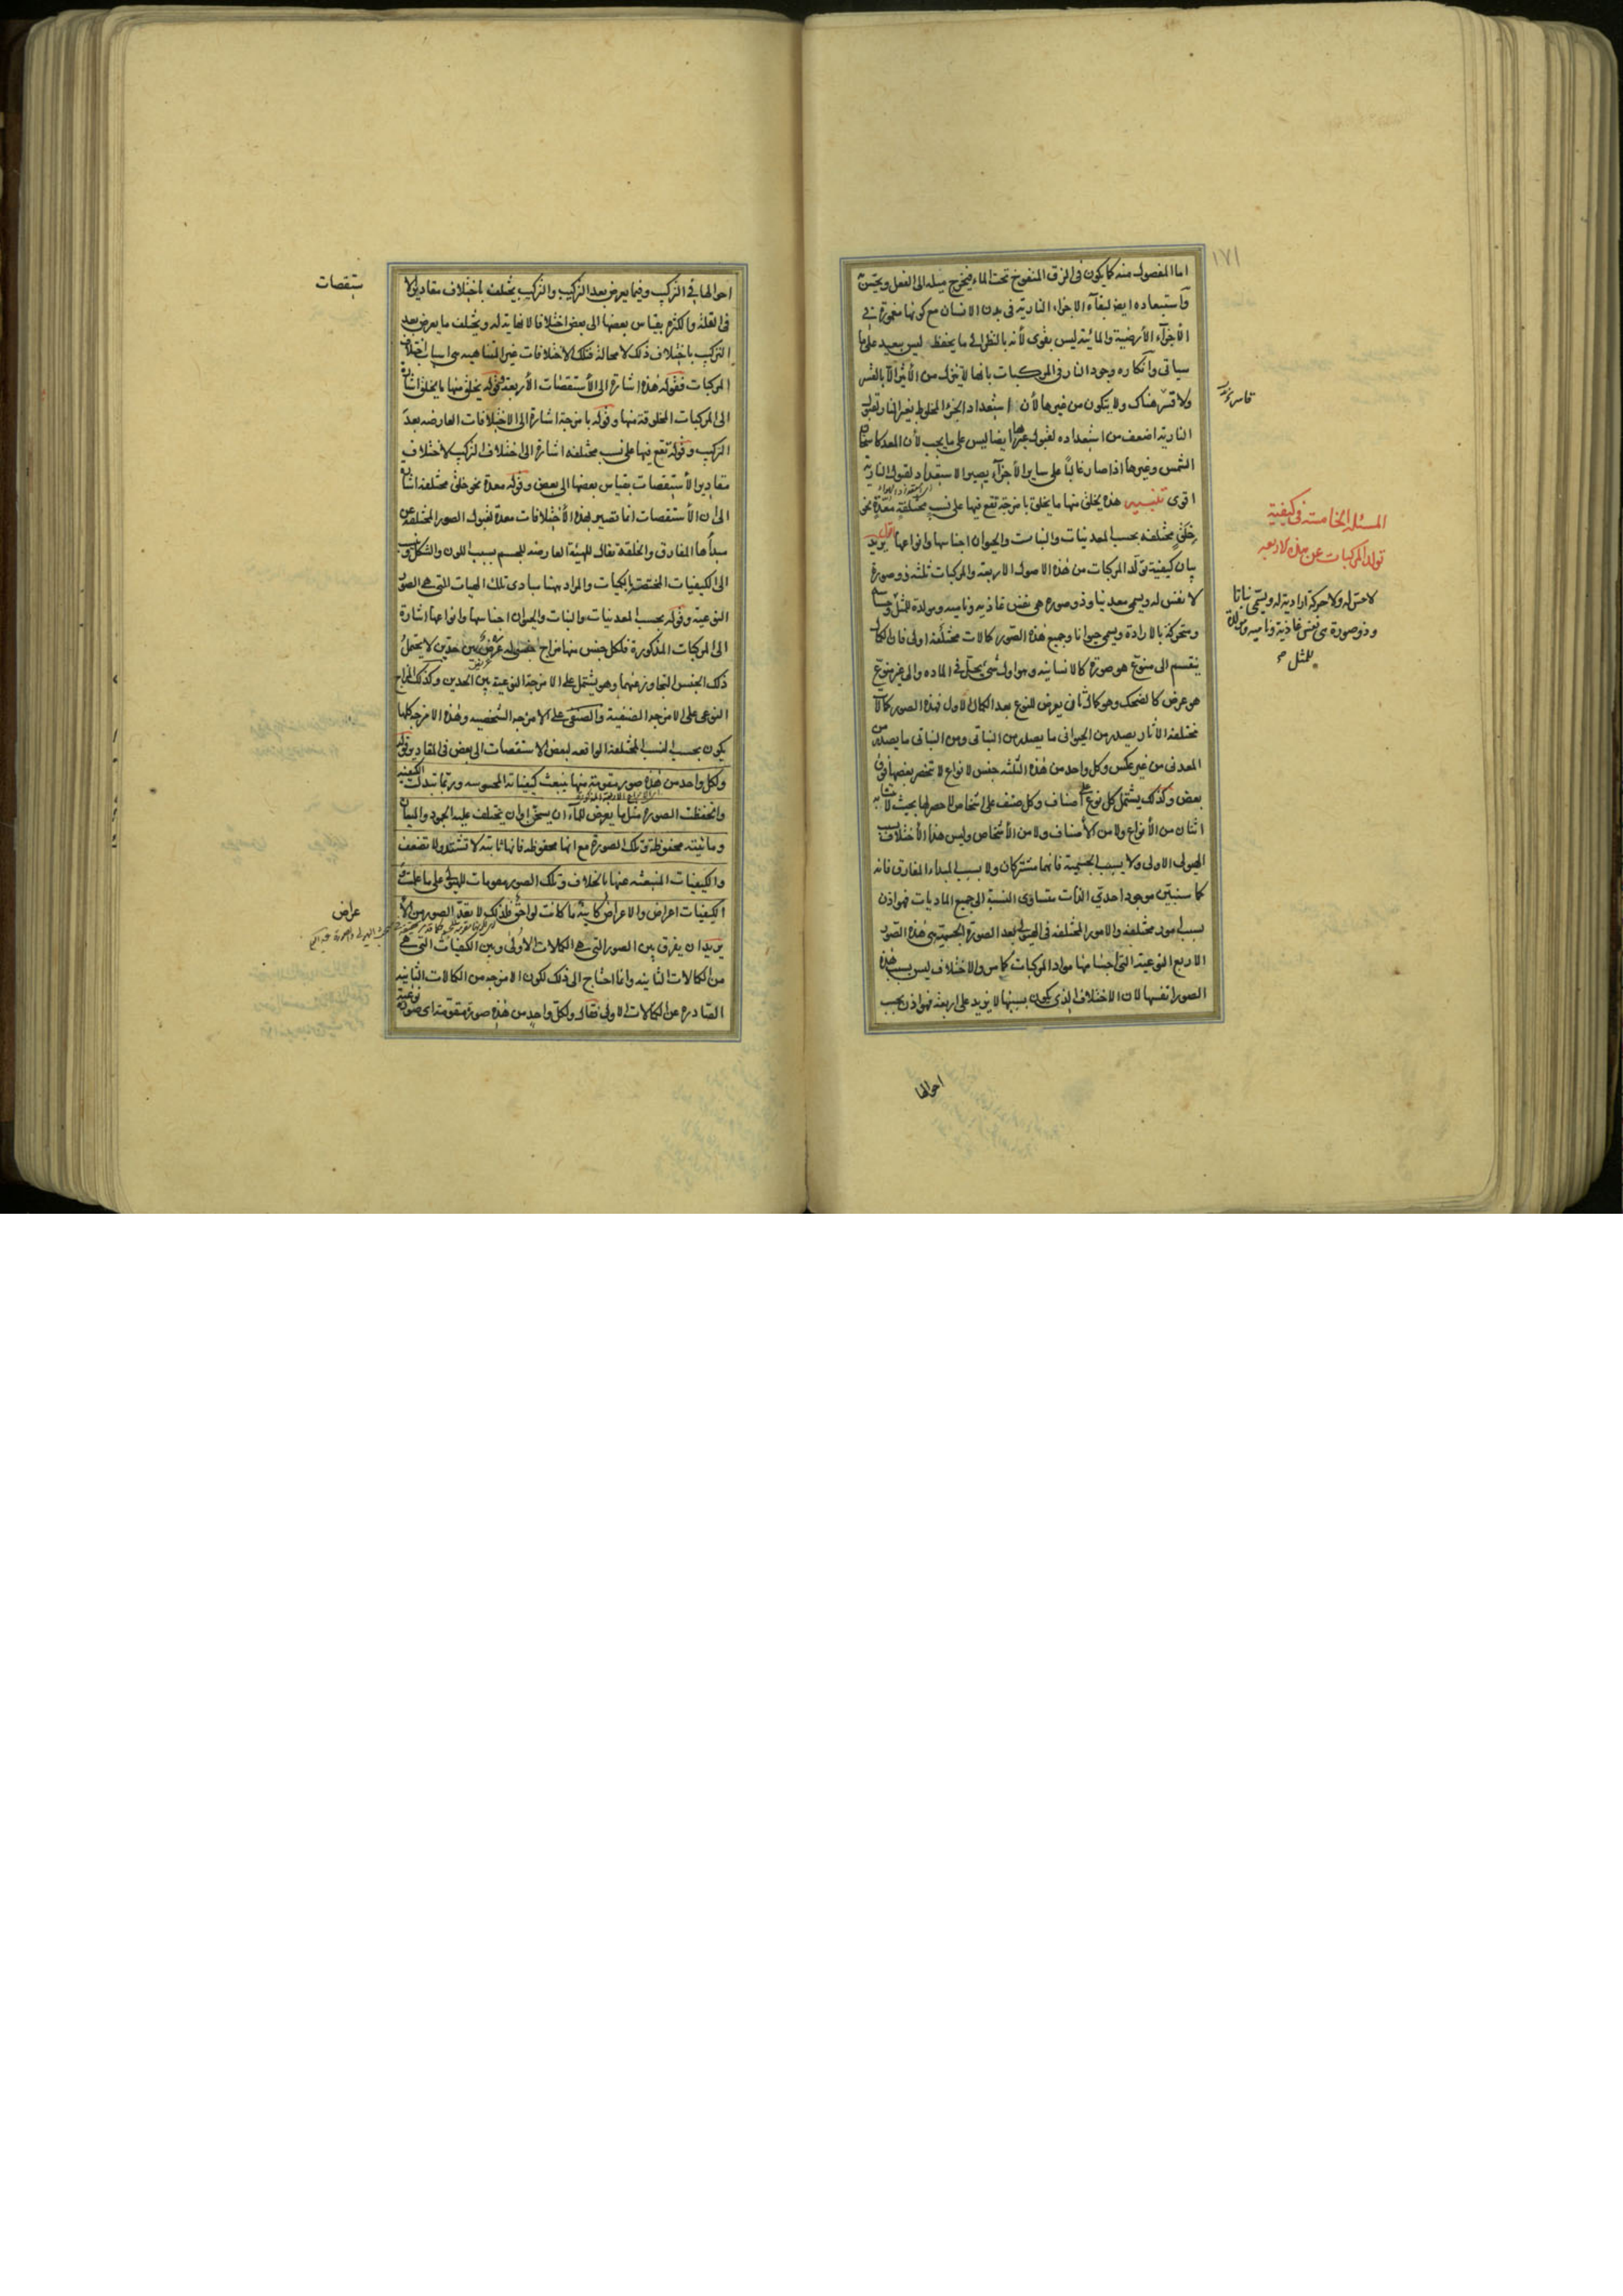 ١٧١
اما المفصول منه كما يكون في الزق المنفوخ تحت الماء فيخرج ميله الى الفعل ويحس
واستبعاده ايضا لبقاء الاجزاء النارية في بدن الانسان مع كونها مغمورة في
الأجزاء الأرضية والمائية ليس بقوى لأنه بالنظر الى ما يحفظه ليس ببعيد على ما
سياتى وانكاره وجود النار في المركبات بانها لا تنزل من الأثير الا بالقسر
ولا قسر هناك ولا يتكون من غيرها لأن استعداد الجزء المخلوط بغير النار لقبول
النارية اضعف من استعداده لقبول غيرها ايضا ليس على ما يجب لأن المعد كاسخان
الشمس وغيرها اذا صار غالباً على ساير الأجزاء يصير الاستعداد لقبول النارية
اقوى تنبيه هذه يخلق منها ما يخلق بامزجة تقع فيها على نسب مختلفة معدة نحو
خلق مختلفة بحسب المعدنيات والنبات والحيوان اجناسها وانواعها اقول يريد
بيان كيفية تولد المركبات من هذه الاصول الاربعة والمركبات ثلثة ذو صورة
لا نفس له ويسمى معدنيا وذو صورة هي نفس غاذية ونامية ومولدة للمثل وحساسة
ومتحركة بالارادة ويسمى حيوانا وجميع هذه الصور كمالات مختلفة اولى فان الكمال
ينقسم الى منوع هو صورة كالانسانية وهو اول شيء يحل في المادة والى غير منوع
هو عرض كالضحك وهو كمال ثان يعرض للنوع بعد الكمال الاول فهذه الصور كمالات
مختلفة الآثار يصدر من الحيوانى ما يصدر من النباتى ومن النباتى ما يصدر من
المعدنى من غير عكس وكل واحد من هذه الثلثة جنس لانواع لا تنحصر بعضها فوق
بعض وكذلك يشتمل كل نوع على أصناف وكل صنف على اشخاص لا حصر لها بحيث لا يتشابه
اثنان من الأنواع ولا من الأصناف ولا من الأشخاص وليس هذا الأختلاف بسبب
الهيولى الاولى ولا بسبب الجسمية فانهما مشتركان ولا بسبب المبداء المفارق فانه
كما سنبين موجود احدي الذات متساوى النسبة الى جميع الماديات فهو اذن
بسبب امور مختلفة والامور المختلفة في الهيولى بعد الصورة الجسمية هي هذه الصور
الاربع النوعية التى اجسامها مواد المركبات كما مر والاختلاف ليس بسبب هذه
الصور انفسها لان الاختلاف الذي يكون بسببها لا يزيد على اربعة فهو اذن بحسب
احوالها
المسئلة الخامسة في كيفية
تولد المركبات عن هذه الاربعة
لا حس له ولا حركة ارادية له ويسمى نباتا
وذو صورة هي نفس غاذية ونامية ومولدة
للمثل صح
احوالها في التركيب وفيما يعرض بعد التركيب والتركيب يختلف باختلاف مقادير الا
ستقصات
في القلة والكثرة بقياس بعضها الى بعض اختلافا لا نهاية له ويختلف ما يعرض بعد
التركيب باختلاف ذلك لا محالة فتلك الاختلافات غير المتناهية هي اسباب اختلاف
المركبات فقوله هذه اشارة الى الأستقصات الأربعة وقوله يخلق منها ما يخلق اشارة
الى المركبات المخلوقة منها وقوله بامزجة اشارة الى الاختلافات العارضة بعد
التركيب وقوله تقع فيها على نسب مختلفة اشارة الى اختلاف التركيب لاختلاف
مقادير الأستقصات بقياس بعضها الى بعض وقوله معدة نحو خلق مختلفة اشارة
الى ان الأستقصات انما تصير بهذه الأختلافات معدة لقبول الصور المختلفة عن
مبدأها المفارق والخلقة تقال للهيئة العارضة للجسم بسبب اللون والشكل
الى الكيفيات المختصة بالكميات والمراد بهنا مبادى تلك الهيات التى هي الصور
النوعية وقوله بحسب المعدنيات والنبات والحيوان اجناسها وانواعها اشارة
الى المركبات المذكورة فلكل جنس منها مزاج جنسى له عرض بين حدين لا يحتمل
ذلك الجنس التجاوز عنهما وهو يشتمل على الامزجة النوعية بين الحدين وكذلك المزاج
النوعى على الامزجة الصنفية والصنفى على الامزجة الشخصية وهذه الامزجة كلها
يكون بحسب النسب المختلفة الواقعة لبعض الاستقصات الى بعض في المقادير قوله
ولكل واحد من هذه صورة مقومة منها ينبعث كيفياته المحسوسة وربما تبدلت الكيفية
وانحفظت الصورة مثل ما يعرض للماء ان يسخن او ان يختلف عليه الجمود والميعان
ومائيته محفوظة وتلك الصورة مع انها محفوظة فانها ثابتة لا تشتد ولا تضعف
والكيفيات المنبعثة عنها بالخلاف وتلك الصور مقومات للهيولى على ما علمت
الكيفيات اعراض والاعراض كائنة ما كانت لواحق فلذلك لا يعد الصور من الأ
عراض
يريد ان يفرق بين الصور التي هي الكمالات الاولى وبين الكيفيات التى هي
من الكمالات الثانية وانما احتاج الى ذلك لكون الامزجة من الكمالات الثانية
الصادرة عن الكمالات الاولى فقال ولكل واحد من هذه صورة مقومة اى صورة نوعية